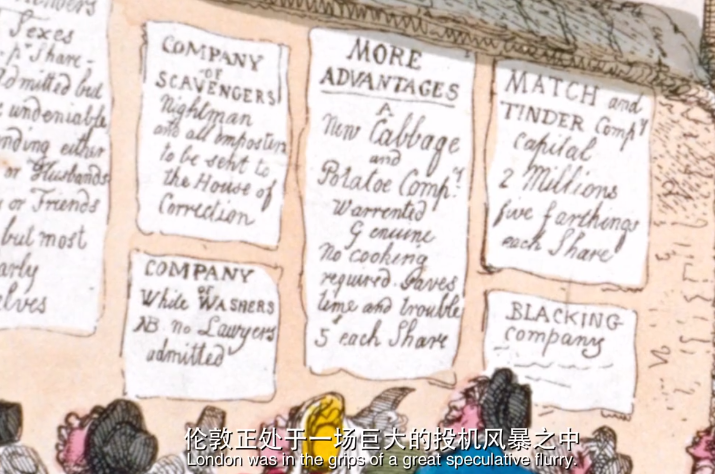 Sexes
Share-
admitted but
undeniable
either
or Husbands
or Friends
but most
elves
COMPANY
OF
SCAVENGERS
Nightman
and all imposters
to be sent to
the House of
Correction
COMPANY
OF
White WASHERS
NB. no Lawyers
admitted
MORE
ADVANTAGES
A
New Cabbage
and
Potatoe Compy.
Warrented
Genuine
No cooking
required. saves
time and trouble
5 each Share
MATCH and
TINDER Compy
Capital
2 Millions
five farthings
each Share
BLACKING
Company
伦敦正处于一场巨大的投机风暴之中
London was in the grips of a great speculative flurry.